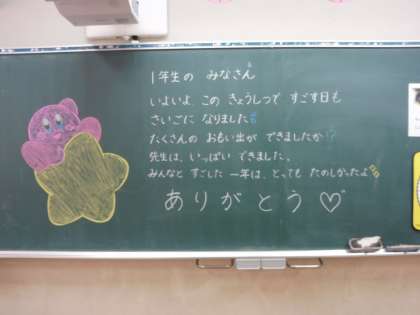 1年生の みなさん
いよいよ、この きょうしつで すごす日も
さいごに なりました
たくさんの おもい出が できましたか!?
先生は、いっぱい できました。
みんなと すごした 一年は、とっても たのしかったよ
ありがとう♡